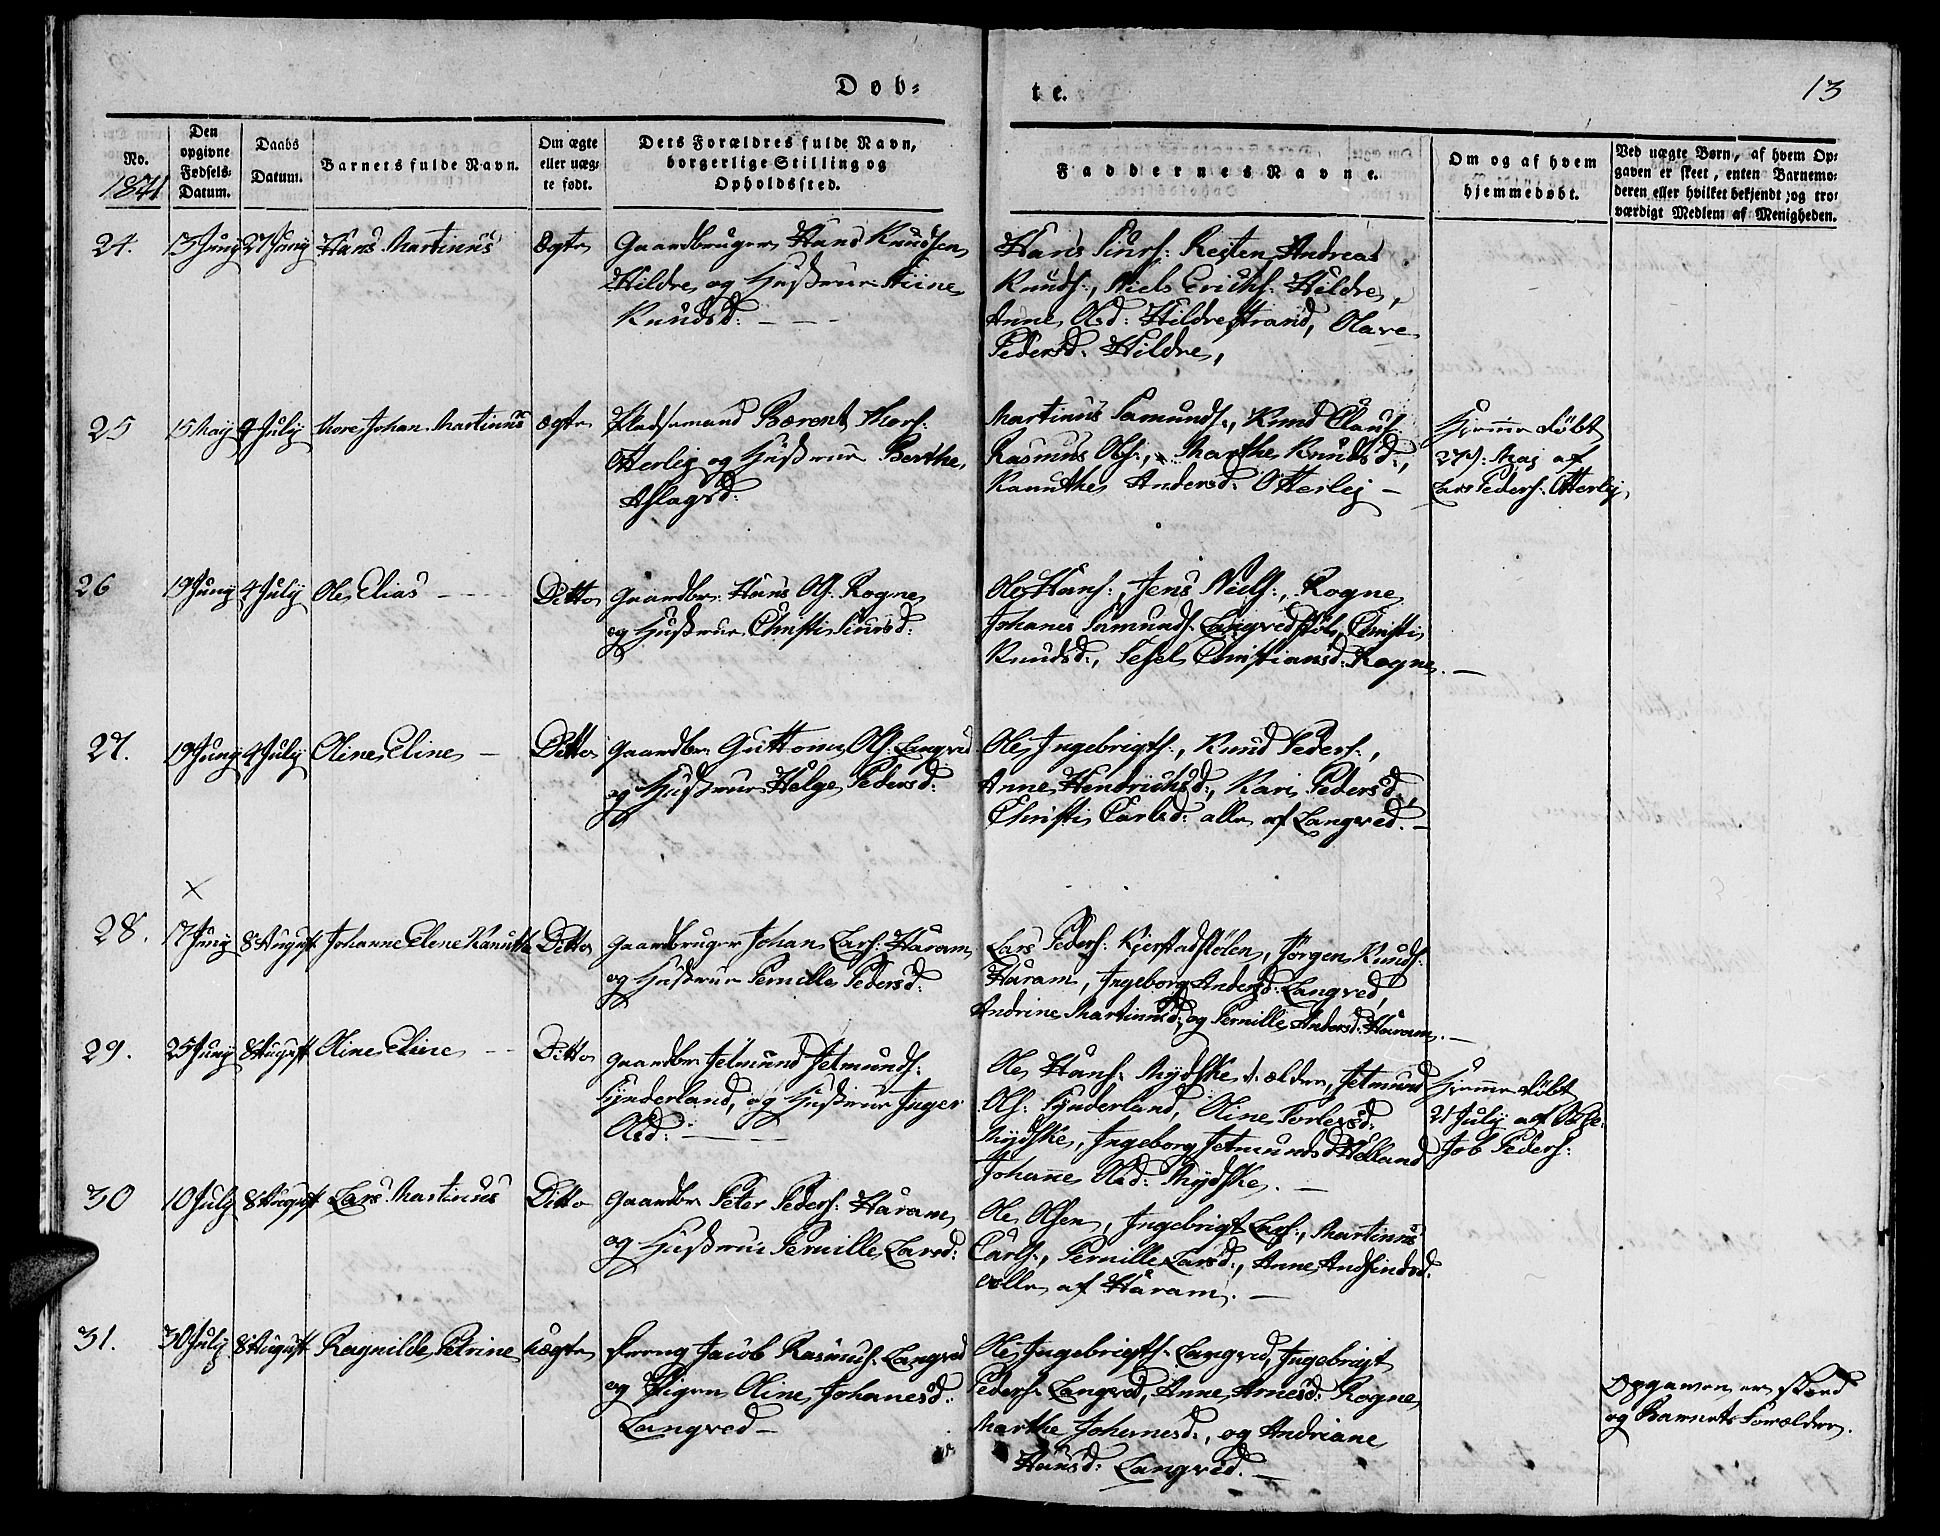 Døb-
te.
13
No.
1841
Den
opgivne
Fødsels-
Datum.
Daabs
Datum.
Barnets fulde Navn.
Om ægte
eller uæg-
te født.
Dets Forældres fulde Navn,
borgerlige Stilling og
Opholdssted.
Faddernes Navne.
Om og af hvem
hjemmedøbt.
Ved uægte Børn, af hvem Op-
gaven er skeet, enten Barnemo-
deren eller hvilket bekjendt og tro-
værdigt Medlem af Menigheden.
24.
13 Juny
27 Juny
Hans Martinus
Ægte
Gaardbruger Hans Knudsen
Hildre og Hustrue
Knudsd: - - -
Hans Siurs: Resten, Andreas
Knuds:, Niels Erichs: Hildre,
Anne Olsd: Hildrestrand, Olave
Pedersd: Hildre,
25
15 May
4 July
Johan Martinus
ægte
Pladsemand Bærent
Otterlej og Hustrue Berthe
Aslagsd:
Martinus Samunds:, Knud Claus:
Rasmus Ols:, Marthe Knudsd:,
Kanuthe Andersd: Otterlej -
Hjemme døbt
27 Maj af
Lars Peders: Otterlej
26
19 Juny
4 July
Ole Elias - - -
Ditto
Gaardbr: Hans Ols: Rogne
og Hustrue Christi Siursd:
Ole Hans:, Jens Niels:, Rogne
Johanes Samunds: Langvedstøl, Christi
Knudsd:, Sesel Christiansd: Rogne. -
27.
19 Juny
4 July
Oline Eline -
Ditto
Gaardbr: Guttorm Ols: Langved
og Hustrue Helge Pedersd:
Ole Ingebrigts:, Knud Peders:,
Anne Hendrichsd:, Kari Pedersd:,
Christi Carlsd: alle af Langved. -
28.
17 Juny
8 August
Johanne Elene Kanuthe
Ditto
Gaardbruger Johan Lars: Haram
og Hustrue Pernille Pedersd:
Lars Peders: Kierstadstølen, Jørgen Knuds:
Haram, Ingeborg Andersd: Langved,
Andrine Martinusd: og Pernille Andersd: Haram. -
29.
25 Juny
8 August
Oline Eline - -
Ditto
Gaardbr: Jetmund Jetmunds:
Synderland, og Hustrue Inger
Olsd: - - -
Ole Hans: Mydske d: ældre, Jetmund
Ols: Synderland, Oline
Mydske, Ingeborg Jetmundsd: Helland
Johane Olsd: Mydske. -
Hjemme døbt
21 July af
Job Peders:
30
10 July
8 August
Lars Martinus
Ditto
Gaardbr: Peter Peders: Haram
og Hustrue Pernille Larsd:
Ole Olsen, Ingebrigt Lars:, Martinus
Carls:, Pernille Larsd:, Anne Andsindsd:
alle af Haram. -
31.
30 July
8 August
Ragnilde Petrine
uægte
Dreng Jacob Rasmus: Langved
og Pigen Oline Johanesd:
Langved -
Ole Ingebrigts: Langved, Ingebrigt
Peders: Langved, Anne Arnesd: Rogne
Marthe Johanesd:, og Andriane
Hansd: Langved. -
Opgaven er skeed
og Barnets Forældre.